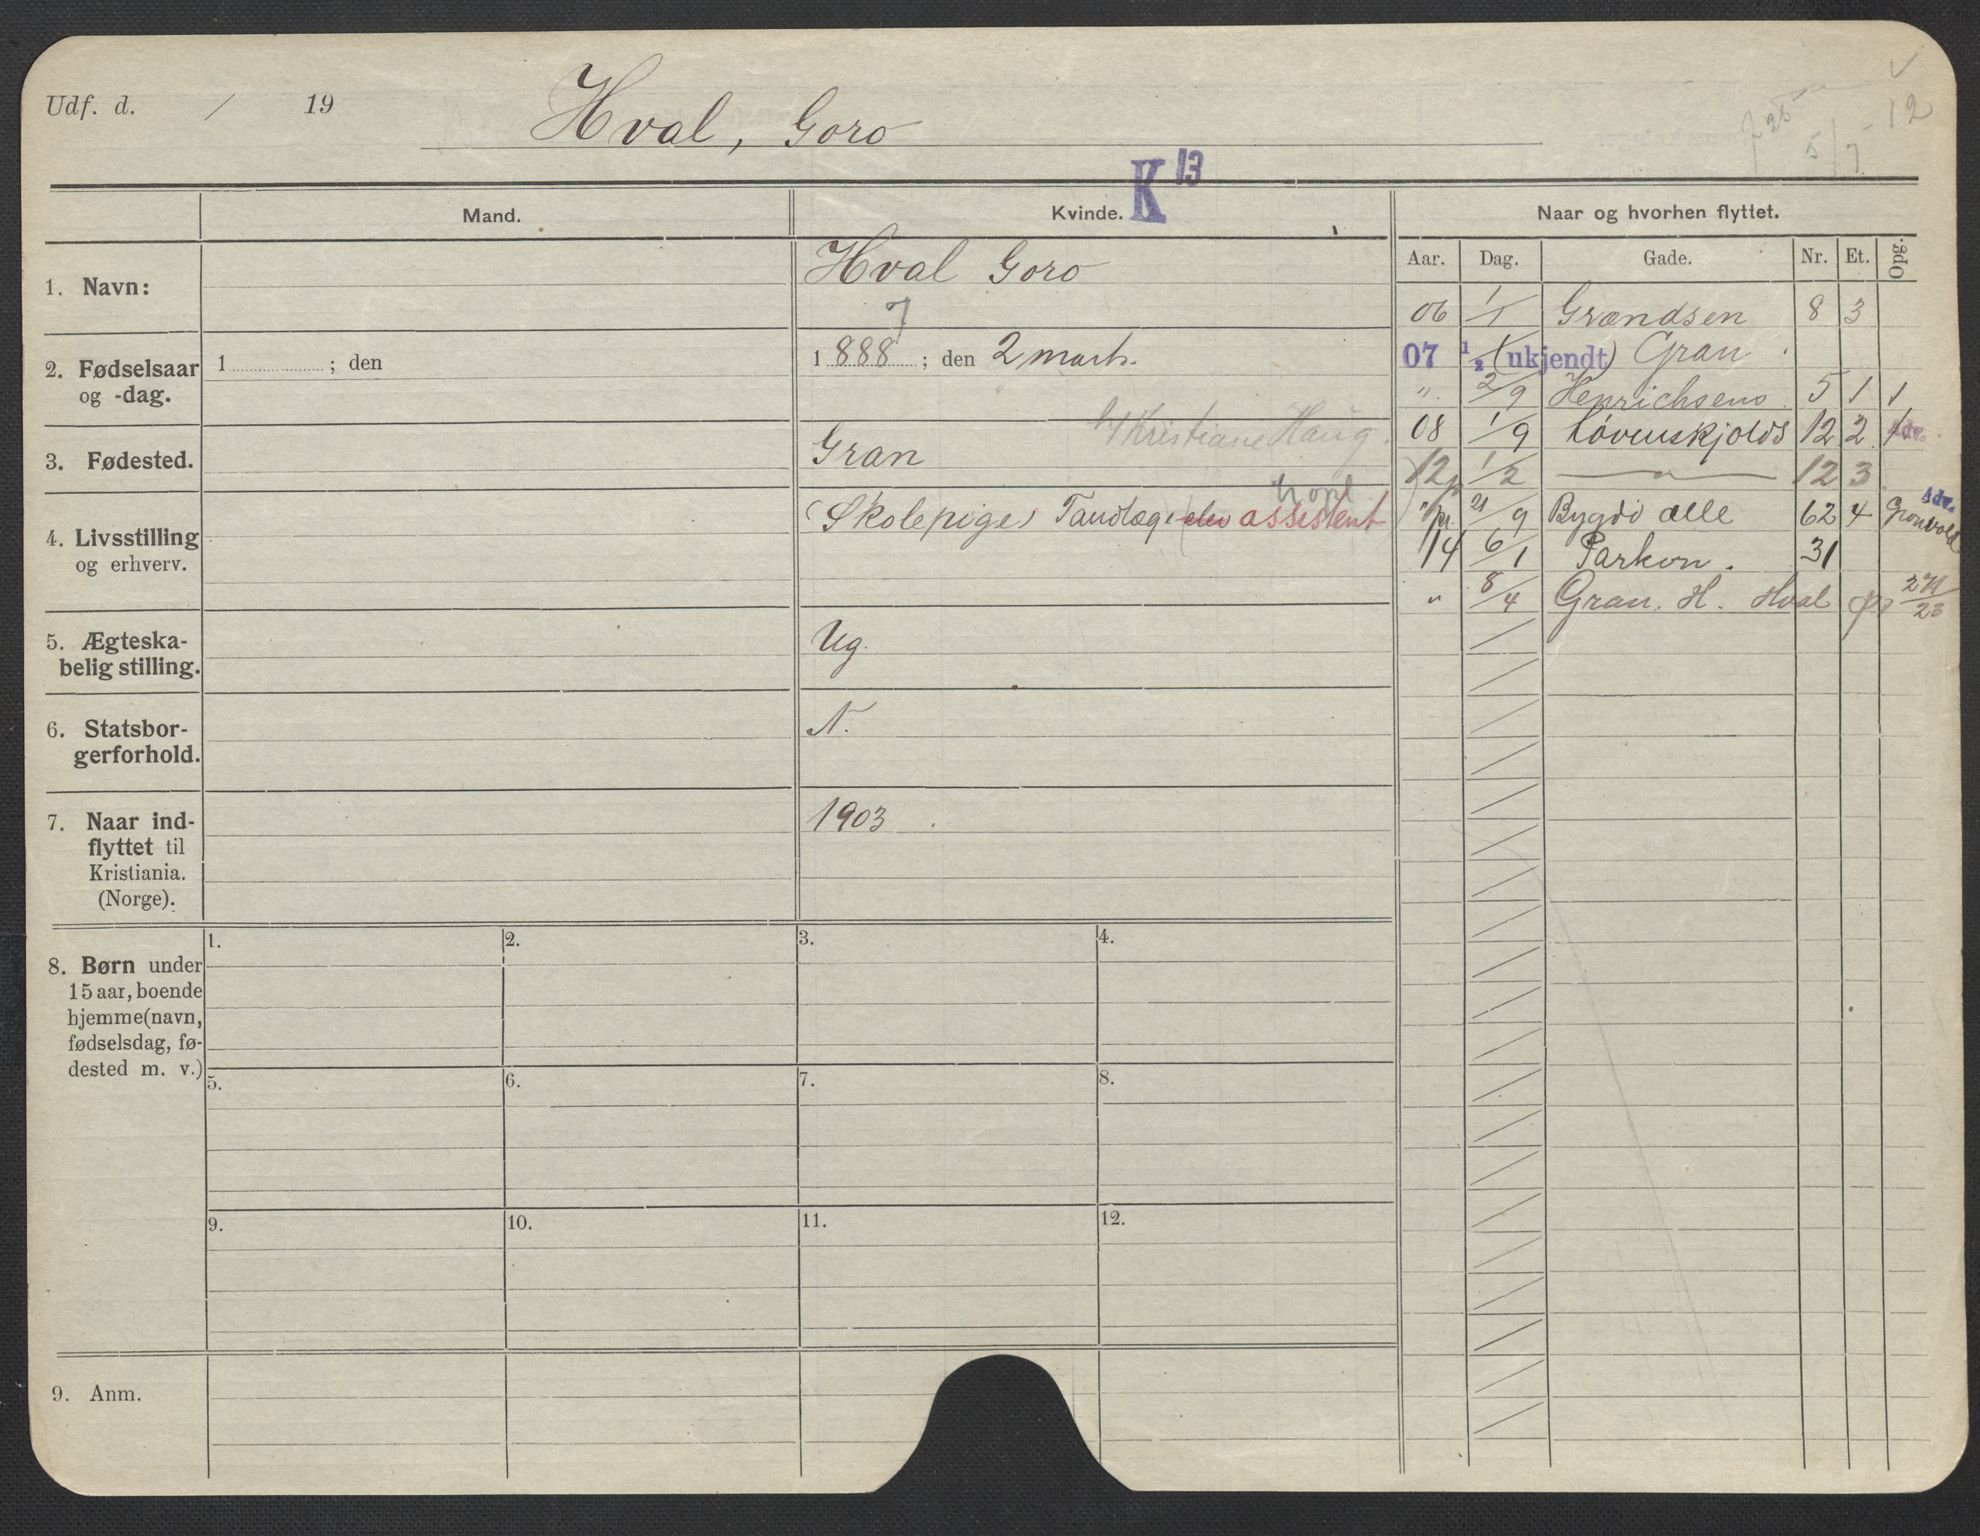 Udf. d. / 19
Hval, Goro
✓
25
5/7 - 12
K 13
Mand.
Kvinde.
Naar og hvorhen flyttet.
Aar. Dag. Gade. Nr. Et. Opg.
1. Navn:
Hval Goro
7
2. Fødselsaar
og -dag.
1 ; den
1888 ; den 2 marts.
Kristiane Haug.
3. Fødested.
Gran
4. Livsstilling
og erhverv.
(Skolepige) Tandlæge elev assistent
5. Ægteska-
belig stilling.
Ug.
6. Statsbor-
gerforhold.
N.
7. Naar ind-
flyttet til
Kristiania.
(Norge).
1903
06 1/1 Grændsen 8 3
07 1/2 (ukjendt) Gran
". 2/9 Henrichsens 5 1 1
08 1/9 Løvenskjolds 12 2 1 Adv.
12 1/2 — " — 12 3
" 21/9 Bygdø alle 62 4 Adv. Gronvold
14 6/1 Parkvn. 31
" 8/4 Gran. H. Hval
8. Børn under
15 aar, boende
hjemme (navn,
fødselsdag, fø-
dested m. v.)
1. 2. 3. 4.
5. 6. 7. 8.
9. 10. 11. 12.
9. Anm.